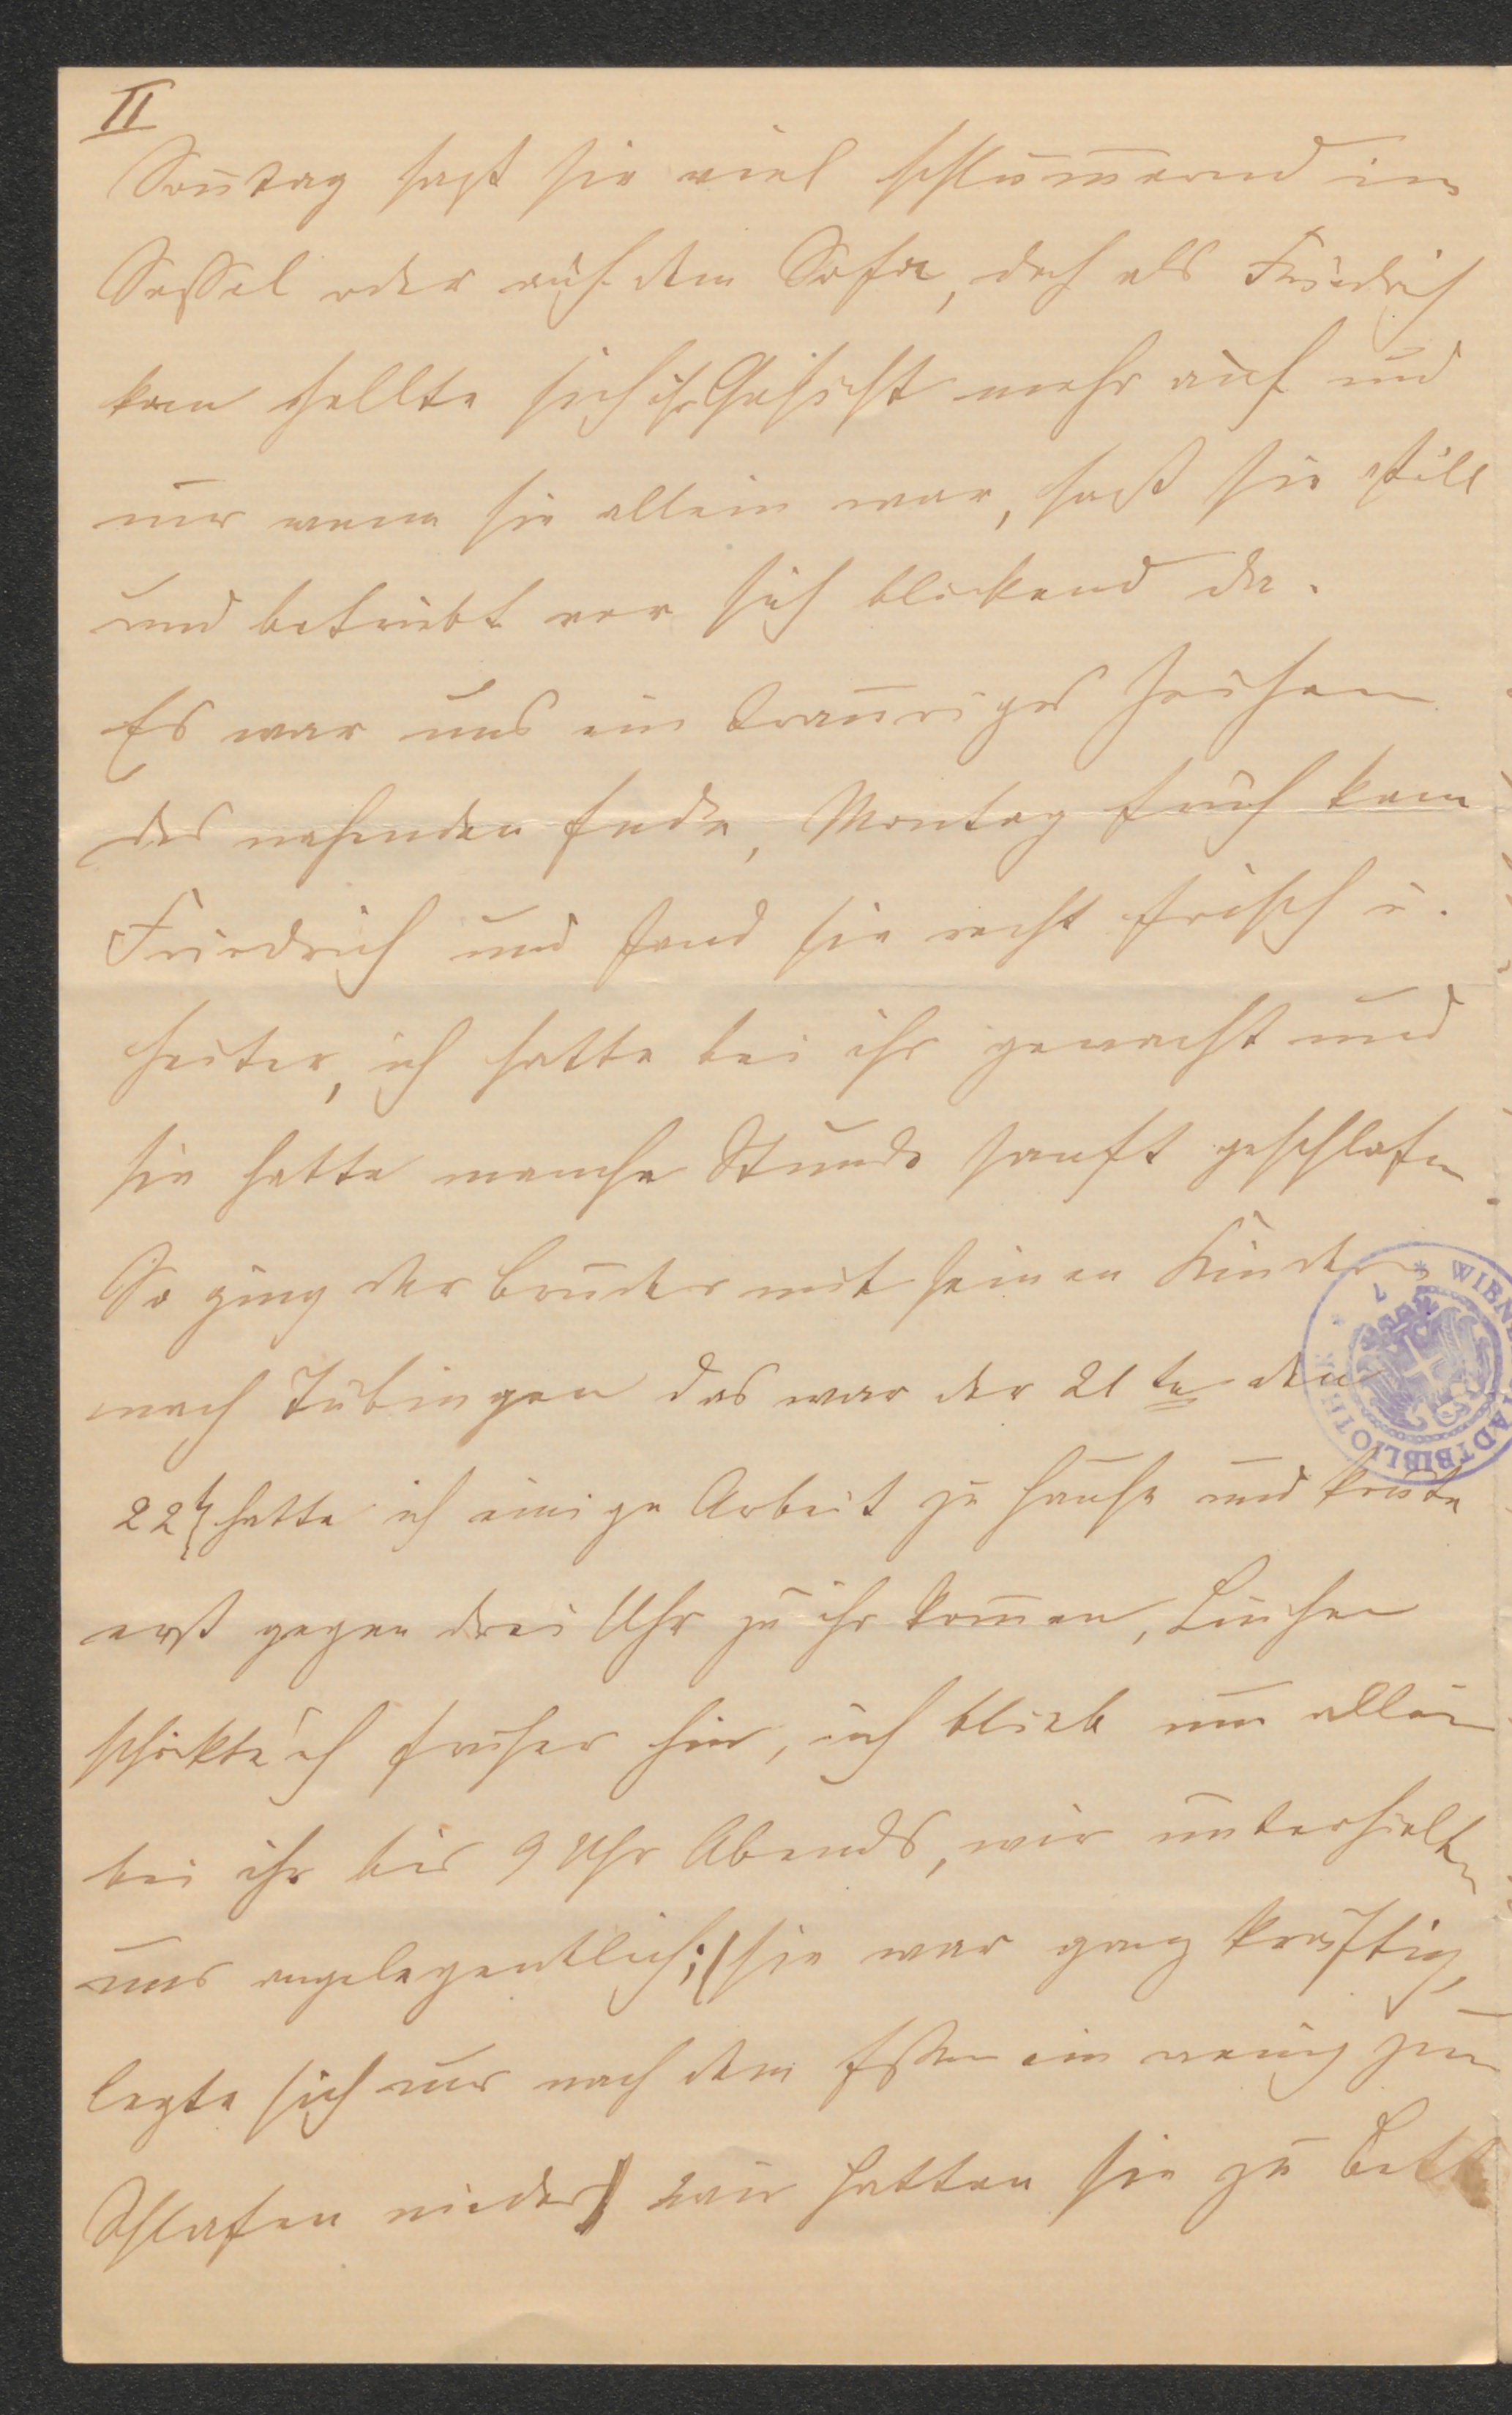 II
Son̄tag saß sie viel schlum̄ernd im
Sessel oder auf dem Sofa, doch als Friedrich
kam hellte sich ihr Gesicht mehr auf und
nur wenn sie allein war, saß sie still
und betrübt vor sich blickend da.
Es war uns ein trauriges Zeichen
des nahenden Ende, Montag früh kam
Friedrich und fand sie recht frisch u.
heiter, ich hatte bei ihr gewacht und
sie hatte manche Stunde sanft geschlafen.
So ging der Bruder mit seinen Kindern
nach Tübingen das war der 21te den
22t hatte ich einige Arbeit zu Hause und kon̄te
erst gegen drei Uhr zu ihr kom̄en, Linchen
schickte ich früher hin, ich blieb nun allein
bei ihr bis 9 Uhr Abends, wir unterhielten
uns angelegentlich; (sie war ganz kräftig,
legte sich nur nach dem Essen ein wenig zum
Schlafen nieder) wir hatten sie zu Bett
WIENER STADTBIBLIOTHEK